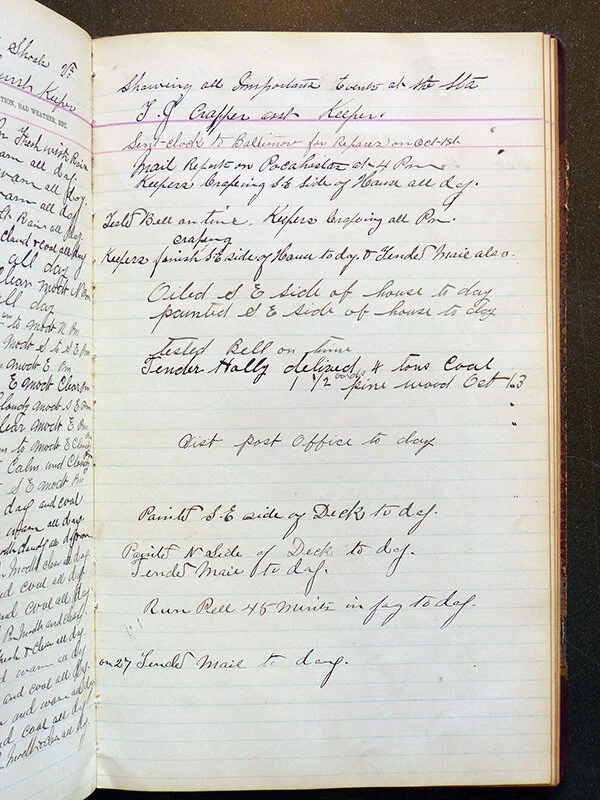 Shoals Va
Keeper
TION, BAD WEATHER, ETC.
Fresh with Rain
warm all day.
warm all day.
warm all day
Rain all day
Cloud & cool all day
all day
Clear modt N Pm
all day
to modt N. Pm
modt S to S E Pm
modt E Pm
E modt Clear Pm
Cloudy modt S E Pm
Clear modt E Pm
to modt E Cloudy
Calm and Cloudy
S E modt
day and cool
warm all day.
cool all day
cool all day
Pm Modt and clear
Fresh & clear all day
warm all day
and cool all day
and warm all day
cool all day
Modt & clear all day
Showing all Important Events at the Sta
T. J Crapper asst Keeper.
Sent clock to Baltimore for Repares on Oct 1st
Mail Report on Pocahastas at 4 Pm
Keepers Craping S. E Side of House all day.
Tested Bell on time. Keepers Craping all Pm.
craping
Keepers finish S E side of House to dy. & Tender Maic also.
Oiled S E side of house to day
painted S E side of house to day
tested Bell on time
Tender Holly delized 4 tons Coal
1 1/2 cords pine wood Oct 13
"
"
Visit post Office to day
Painted S. E side of Deck to day.
Painted N Side of Deck to day.
Tender Maic to day.
Run Bell 45 Minits in fog to day.
on 27 Tender Maic to day.